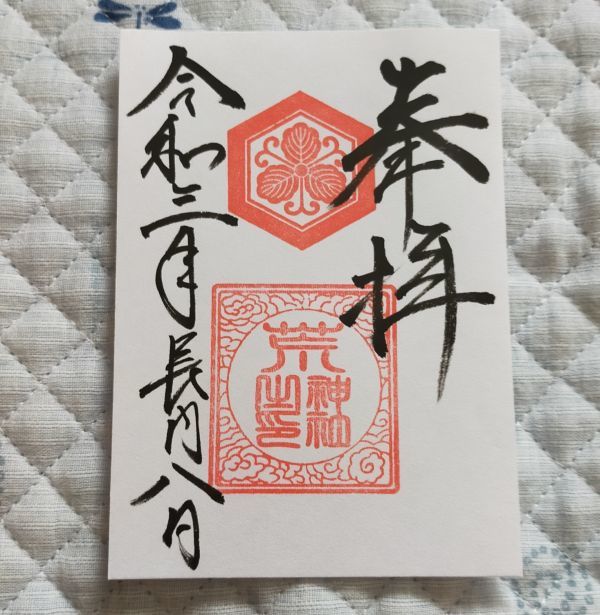 奉拝
荒
神社
之印
令和三年長月八日